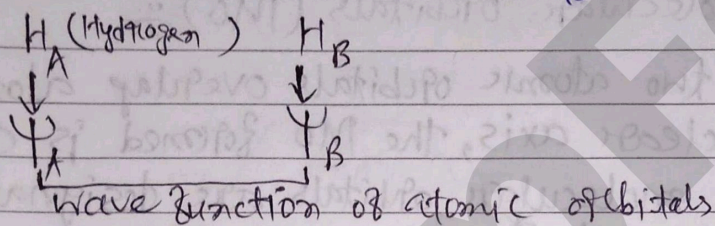 H_A (Hydrogen) H_B
Ψ_A Ψ_B
wave function of atomic orbitals